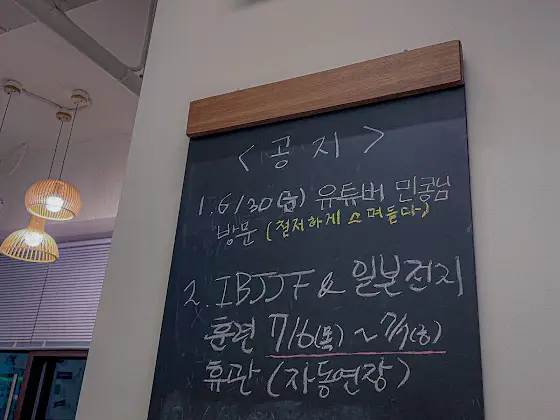 < 공지 >
1. 6/30(금) 유튜버 민콩님
방문 (철저하게 스며들다)
2. IBJJF & 일본전지
훈련 7/6(목) ~ 7/7(금)
휴관 (자동연장)